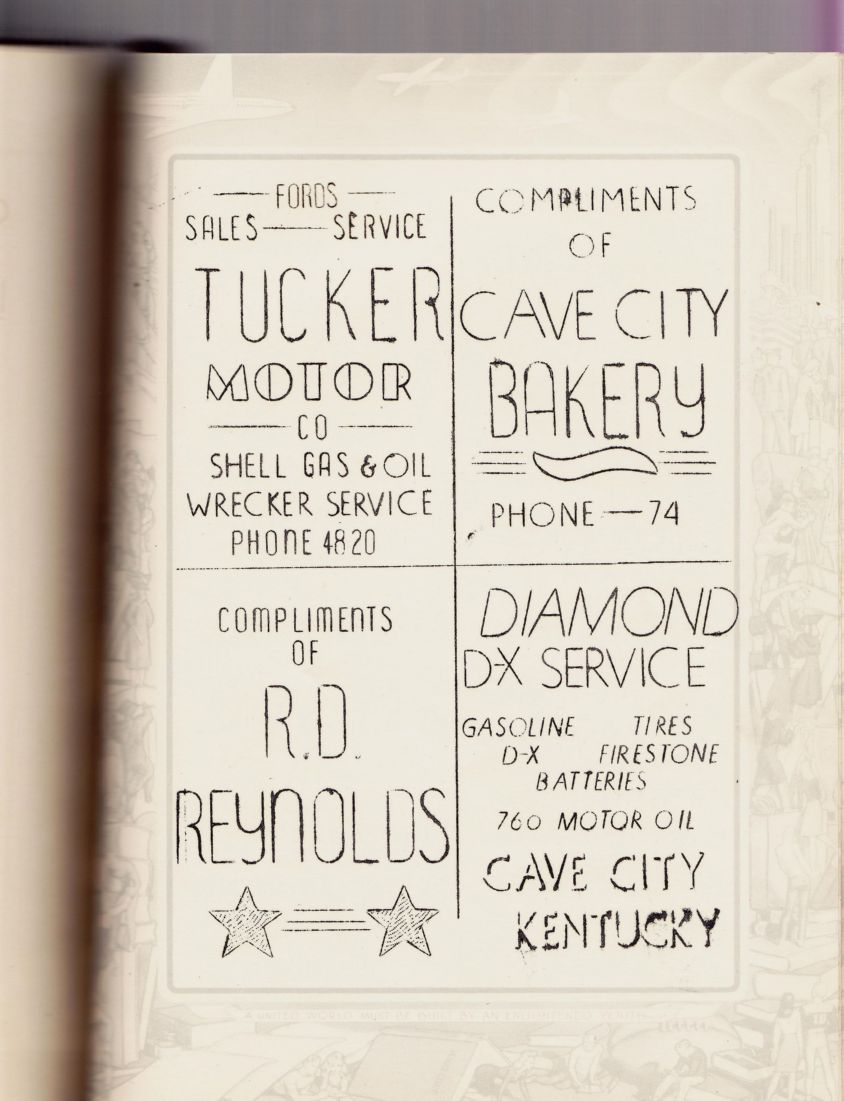 FORDS
SALES — SERVICE
TUCKER
MOTOR
CO
SHELL GAS & OIL
WRECKER SERVICE
PHONE 4820
COMPLIMENTS
OF
CAVE CITY
BAKERY
PHONE — 74
COMPLIMENTS
OF
R.D.
REYNOLDS
DIAMOND
D-X SERVICE
GASOLINE TIRES
D-X FIRESTONE
BATTERIES
760 MOTOR OIL
CAVE CITY
KENTUCKY
A UNITED WORLD MUST BE BUILT BY AN ENLIGHTENED YOUTH